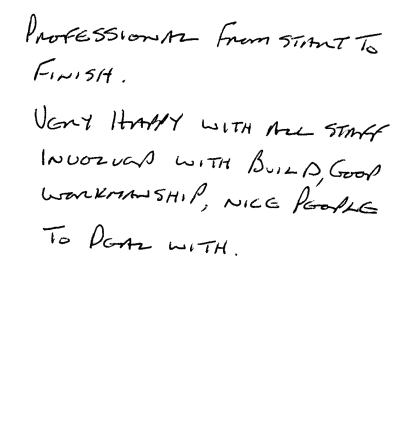 PROFESSIONAL FROM START TO
FINISH.
VERY HAPPY WITH ALL STAFF
INVOLVED WITH BUILD, GOOD
WORKMANSHIP, NICE PEOPLE
TO DEAL WITH.